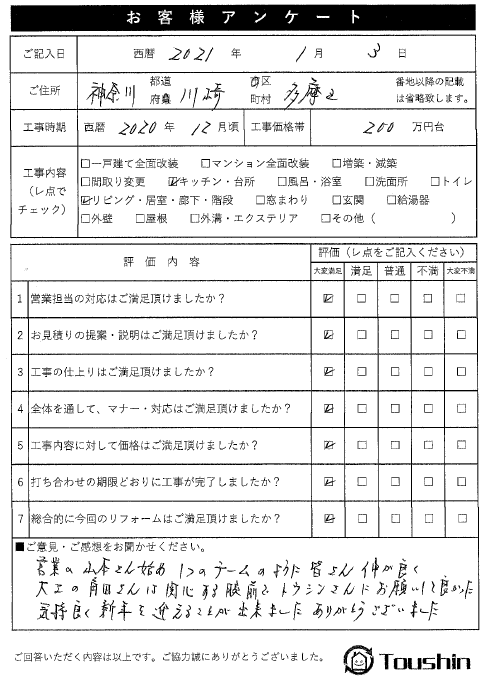 お客様アンケート
ご記入日 西暦 2021 年 1 月 3 日
ご住所 神奈川 都道府県 川崎 市区町村 多摩区 番地以降の記載は省略致します。
工事時期 西暦 2020 年 12 月頃 工事価格帯 200 万円台
工事内容（レ点でチェック）
□一戸建て全面改装 □マンション全面改装 □増築・減築
□間取り変更 ☑キッチン・台所 □風呂・浴室 □洗面所 □トイレ
☑リビング・居室・廊下・階段 □窓まわり □玄関 □給湯器
□外壁 □屋根 □外溝・エクステリア □その他（ ）
評価内容 評価（レ点をご記入ください）
大変満足 満足 普通 不満 大変不満
1 営業担当の対応はご満足頂けましたか？ ☑ □ □ □ □
2 お見積りの提案・説明はご満足頂けましたか？ ☑ □ □ □ □
3 工事の仕上りはご満足頂けましたか？ ☑ □ □ □ □
4 全体を通して、マナー・対応はご満足頂けましたか？ ☑ □ □ □ □
5 工事内容に対して価格はご満足頂けましたか？ ☑ □ □ □ □
6 打ち合わせの期限どおりに工事が完了しましたか？ ☑ □ □ □ □
7 総合的に今回のリフォームはご満足頂けましたか？ ☑ □ □ □ □
■ご意見・ご感想をお聞かせください。
営業の山本さん始め 1つのチームのように皆さん仲が良く
大工の角田さんは関心する腕前で トウシンさんにお願いして良かった
気持良く新年を迎えることが出来ました ありがとうございました
ご回答いただく内容は以上です。ご協力誠にありがとうございました。
Toushin